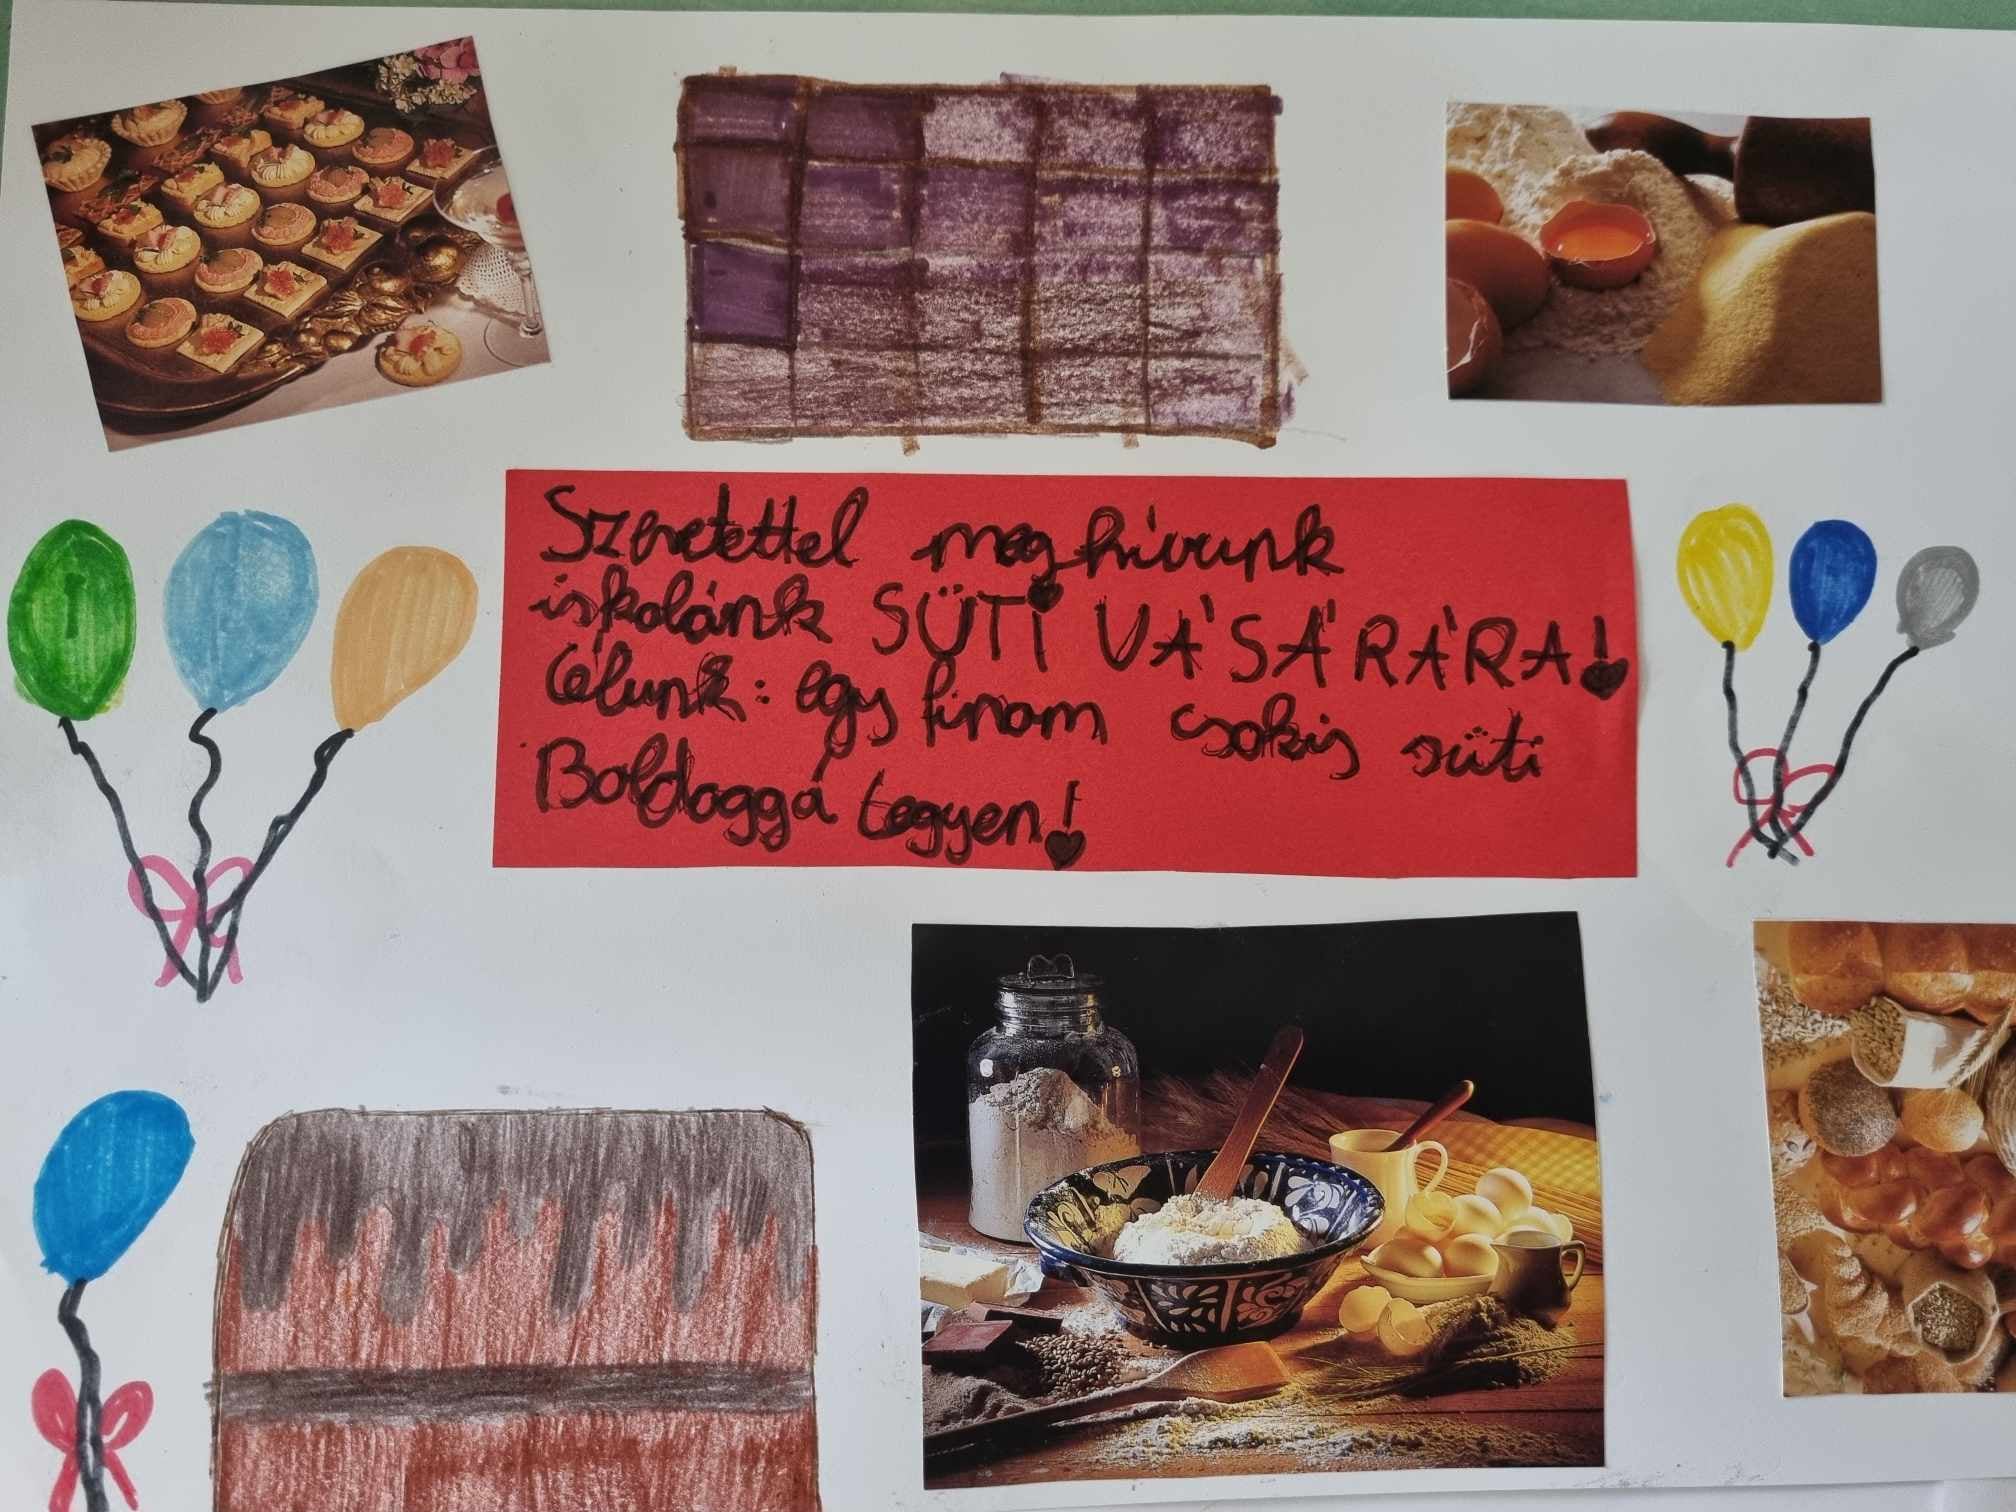 Szeretettel meghívunk
iskolánk SÜTi VÁSÁRÁRA!
Célunk: egy finom csokis süti
Boldoggá tegyen!